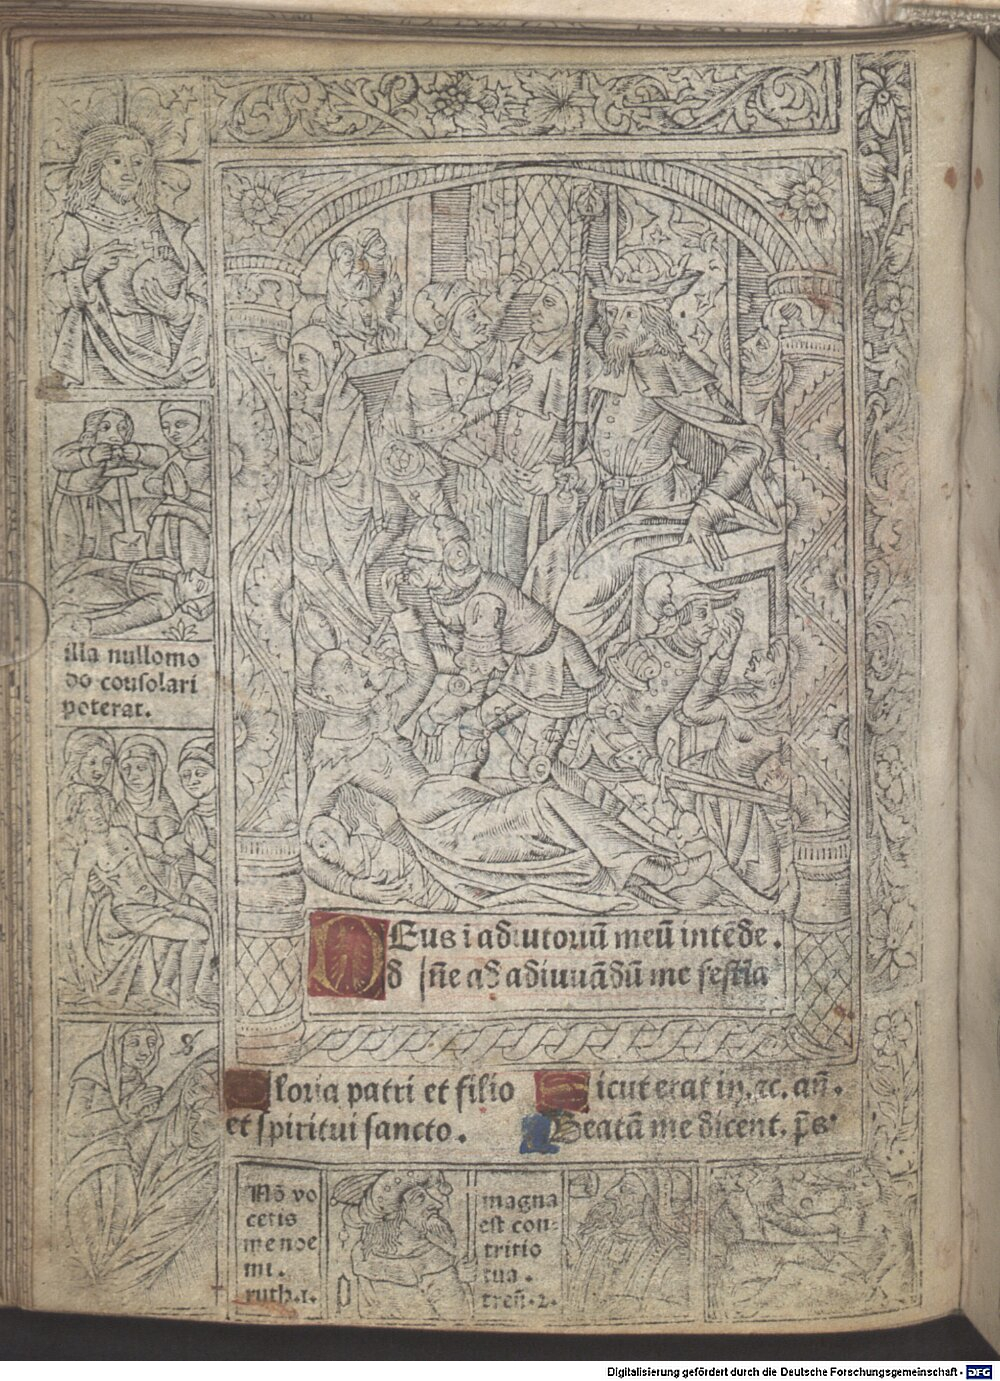 illa nullomo
do consolari
poterat.
DEus ī adiutoriū meū intēde.
dn̄e ad adiuuādū me festīa
Gloria patri et filio
et spiritui sancto.
Sicut erat in. ⁊c. an̄.
Beatā me dicent. p̄s'
Nō vo
cetis
me noe
mi.
ruth.1.
magna
est con:
tritio
tua.
tren̄.2.
Digitalisierung gefördert durch die Deutsche Forschungsgemeinschaft - DFG